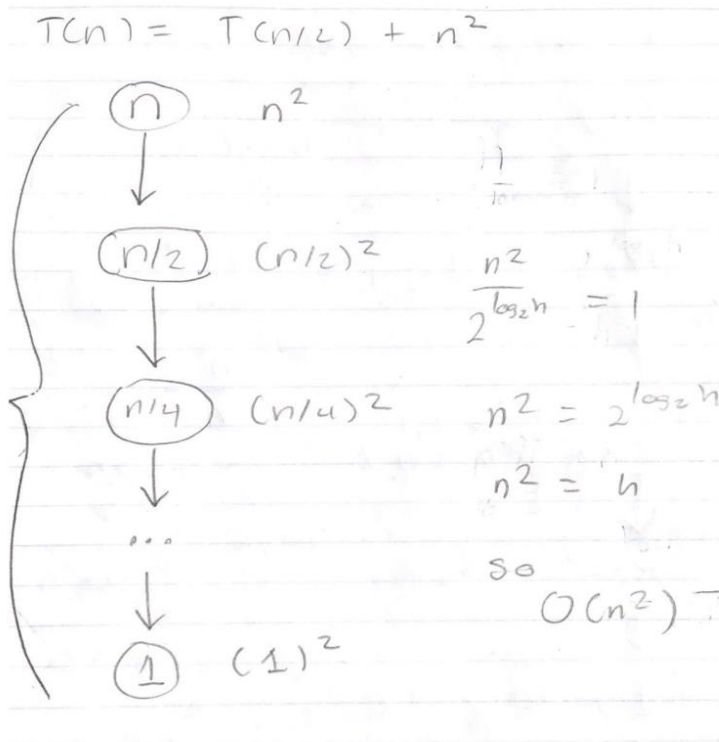 T(n) = T(n/2) + n²
n n²
n/2 (n/2)²
n/4 (n/4)²
...
1 (1)²
n²
2^log₂n = 1
n² = 2^log₂n
n² = n
so
O(n²)